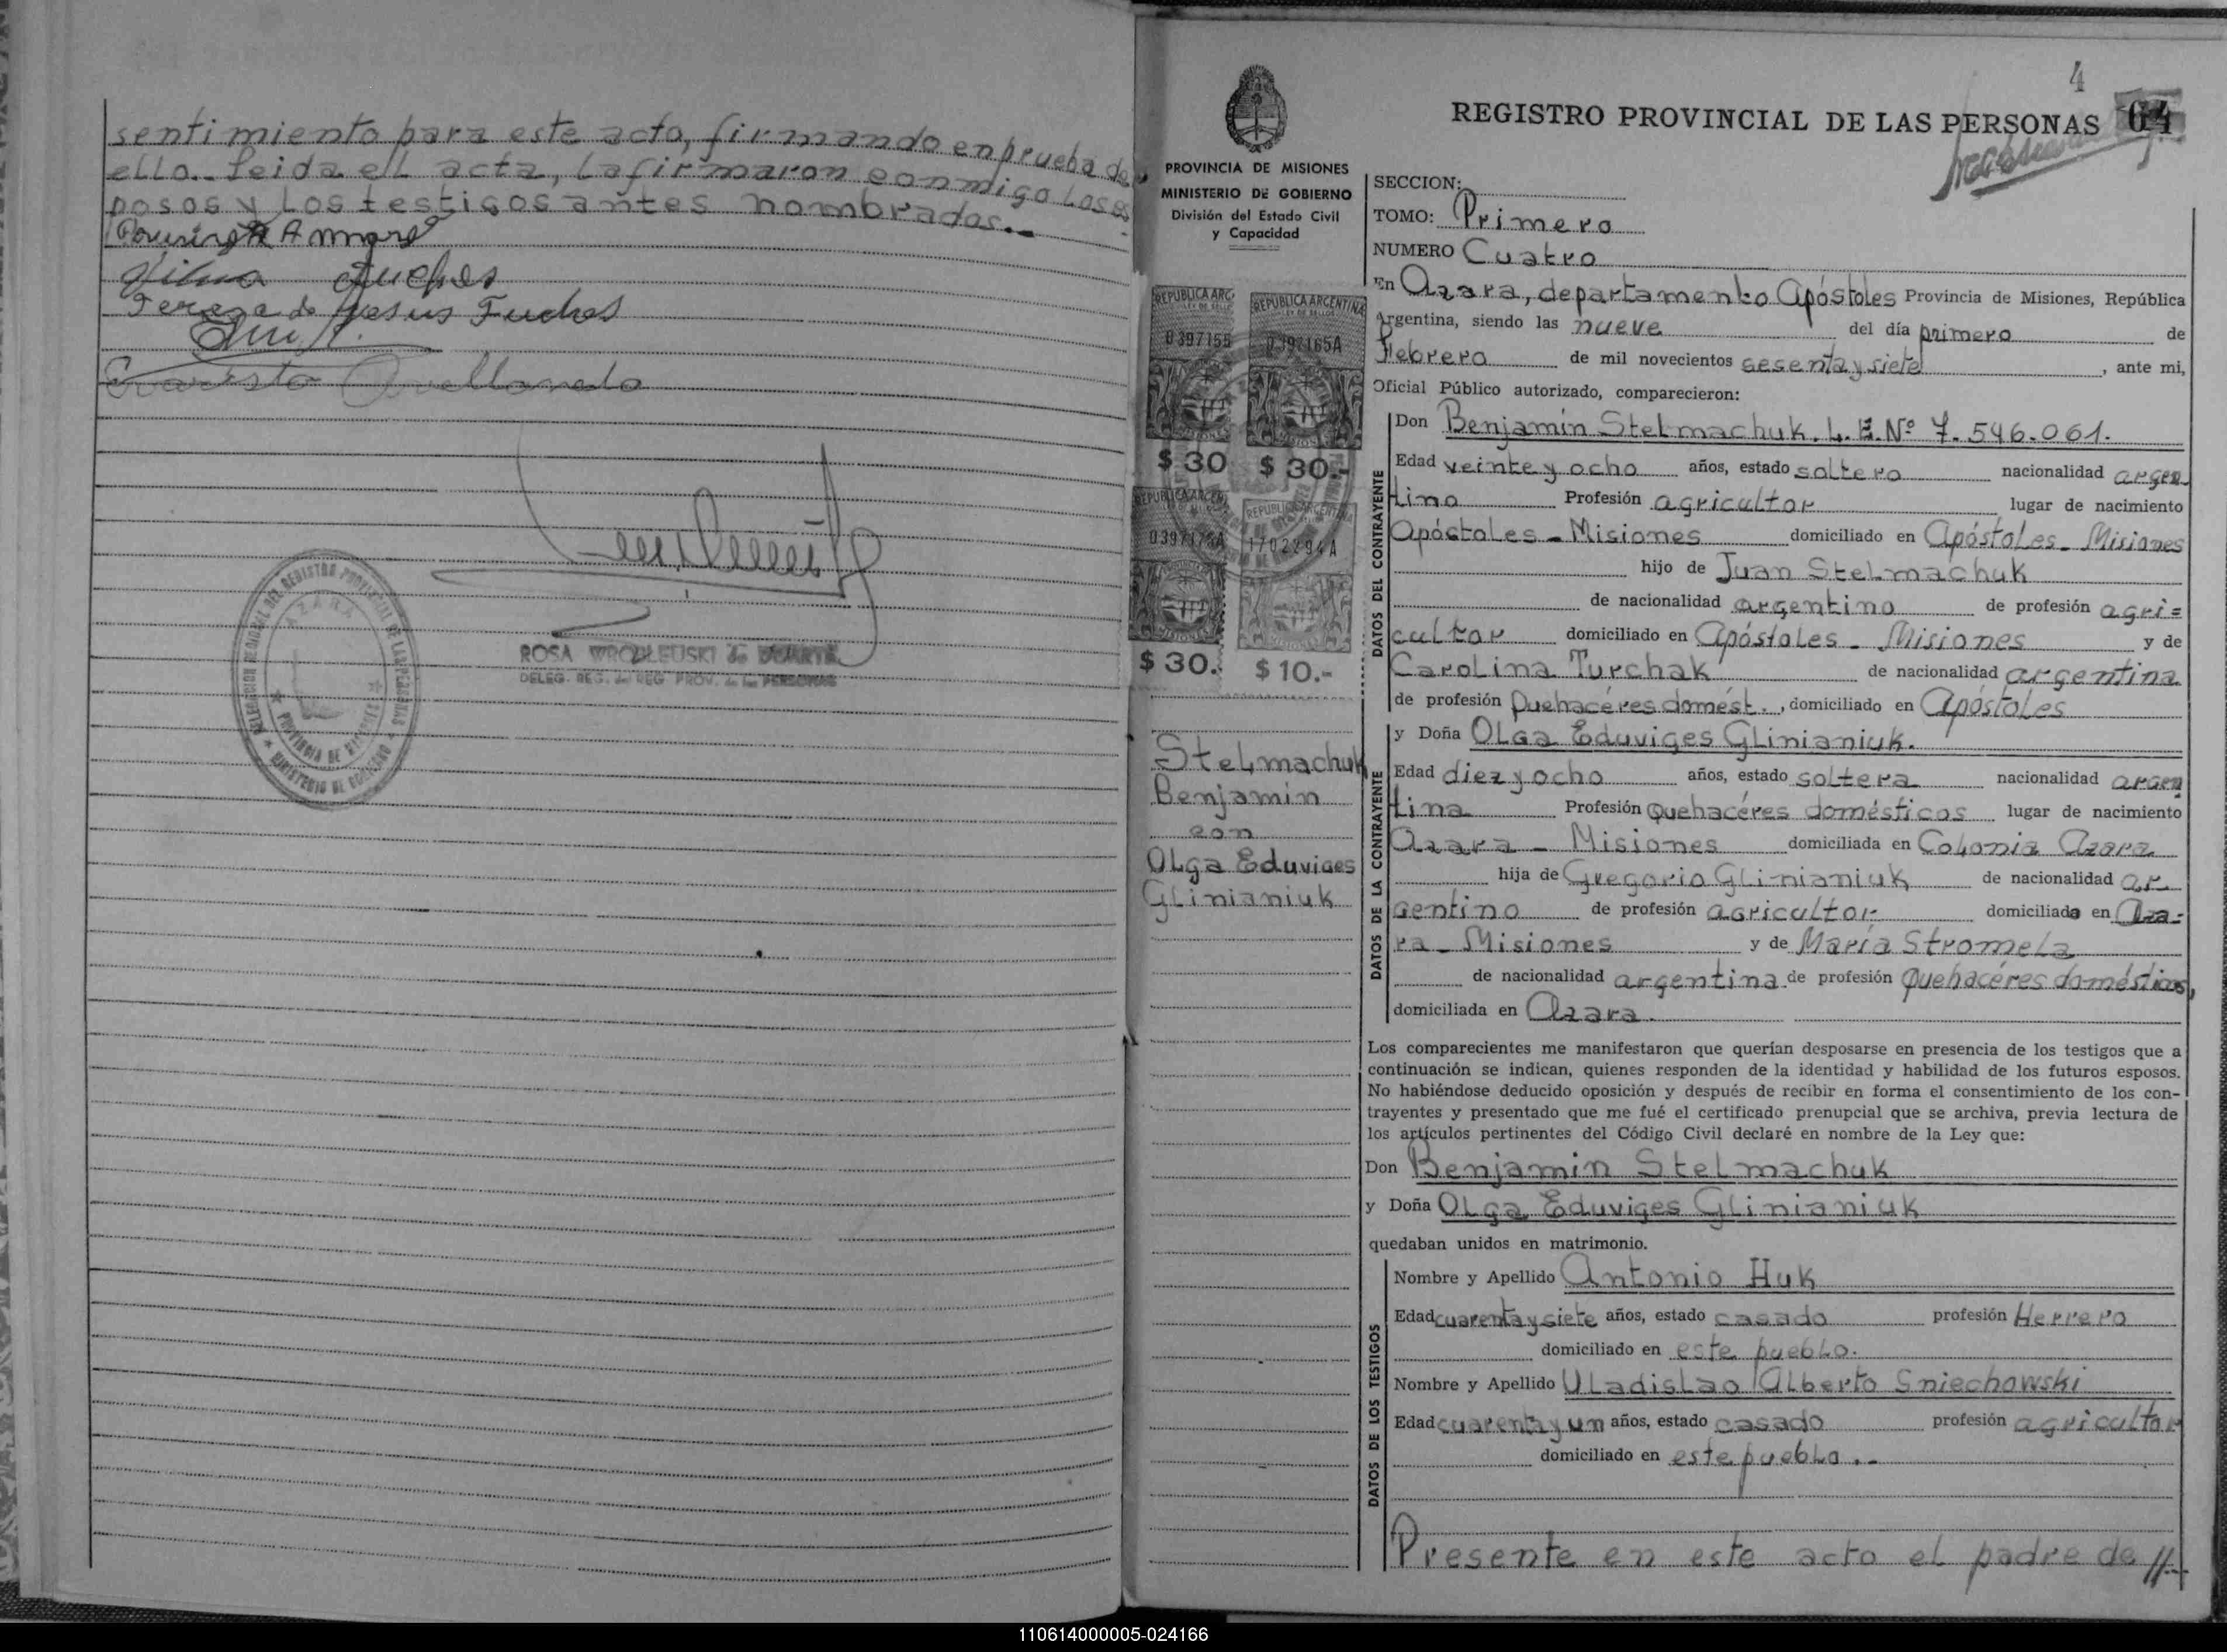 sentimiento para este acto, firmando en prueba de
ello.. Leida el acta, la firmaron conmigo los es
posos y los testigos antes nombrados..-
Vilma Fuchs
Tereza de Jesus Fuchs
Evaristo Avellaneda
DELEGACION REGIONAL DEL REGISTRO PROVINCIAL DE LAS PERSONAS
AZARA
PROVINCIA DE MISIONES
MINISTERIO DE GOBIERNO
ROSA WROBLEUSKI de DUARTE
DELEG. REG. del REG PROV. de las PERSONAS
4
REGISTRO PROVINCIAL DE LAS PERSONAS 64
PROVINCIA DE MISIONES
MINISTERIO DE GOBIERNO
División del Estado Civil
y Capacidad
REPUBLICA ARG
LEY DE SELLOS
0397155
$ 30
REPUBLICA ARGENTINA
LEY DE SELLOS
0397165A
MISIONES
$ 30.-
REPUBLICA ARGEN
0397175A
MISIONES
$ 30.
REPUBLICA ARGENTINA
1702294A
MISIONES
$ 10.-
Stelmachuk
Benjamin
con
Olga Eduviges
Glinianiuk
SECCION:
TOMO: Primero
NUMERO Cuatro
En Azara, departamento Apóstoles Provincia de Misiones, República
Argentina, siendo las nueve del día primero de
Febrero de mil novecientos sesenta y siete, ante mi,
Oficial Público autorizado, comparecieron:
DATOS DEL CONTRAYENTE
Don Benjamin Stelmachuk. L.E.Nº 7.546.061.
Edad veinte y ocho años, estado soltero nacionalidad argen
tino Profesión agricultor lugar de nacimiento
Apóstoles - Misiones domiciliado en Apóstoles - Misiones
hijo de Juan Stelmachuk
de nacionalidad argentino de profesión agri=
cultor domiciliado en Apóstoles - Misiones y de
Carolina Turchak de nacionalidad argentina
de profesión Quehacéres domést., domiciliado en Apóstoles
DATOS DE LA CONTRAYENTE
y Doña Olga Eduviges Glinianiuk.
Edad diez y ocho años, estado soltera nacionalidad argen
tina Profesión Quehacéres domésticos lugar de nacimiento
Azara - Misiones domiciliada en Colonia Azara
hija de Gregorio Glinianiuk de nacionalidad ar
gentino de profesión agricultor domiciliado en Aza=
ra - Misiones y de María Stromela
de nacionalidad argentina de profesión Quehacéres domésticos,
domiciliada en Azara.
Los comparecientes me manifestaron que querían desposarse en presencia de los testigos que a
continuación se indican, quienes responden de la identidad y habilidad de los futuros esposos.
No habiéndose deducido oposición y después de recibir en forma el consentimiento de los con-
trayentes y presentado que me fué el certificado prenupcial que se archiva, previa lectura de
los artículos pertinentes del Código Civil declaré en nombre de la Ley que:
Don Benjamin Stelmachuk
y Doña Olga Eduviges Glinianiuk
quedaban unidos en matrimonio.
DATOS DE LOS TESTIGOS
Nombre y Apellido Antonio Huk
Edad cuarenta y siete años, estado casado profesión Herrero
domiciliado en este pueblo.
Nombre y Apellido Uladislao Alberto Sniechowski
Edad cuarenta y un años, estado casado profesión agricultor
domiciliado en este pueblo..-
Presente en este acto el padre de //-
110614000005-024166